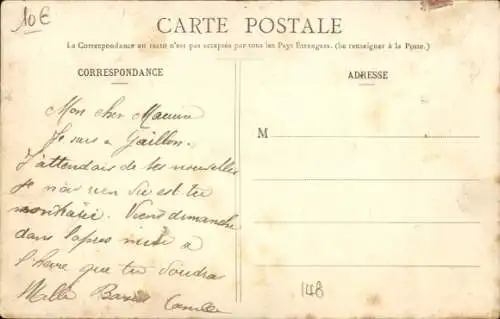 10€
CARTE POSTALE
La Correspondance au recto n'est pas acceptée par tous les Pays Étrangers. (Se renseigner à la Poste.)
CORRESPONDANCE
ADRESSE
M
Mon cher Maurice
Je suis a Gaillon.
J'attendais de tes nouvelles
Je n'ai rien Su est tu
Vient dimanche
dans lapres midi a
l'heure que tu Voudras
Mille Baisers Camille
148